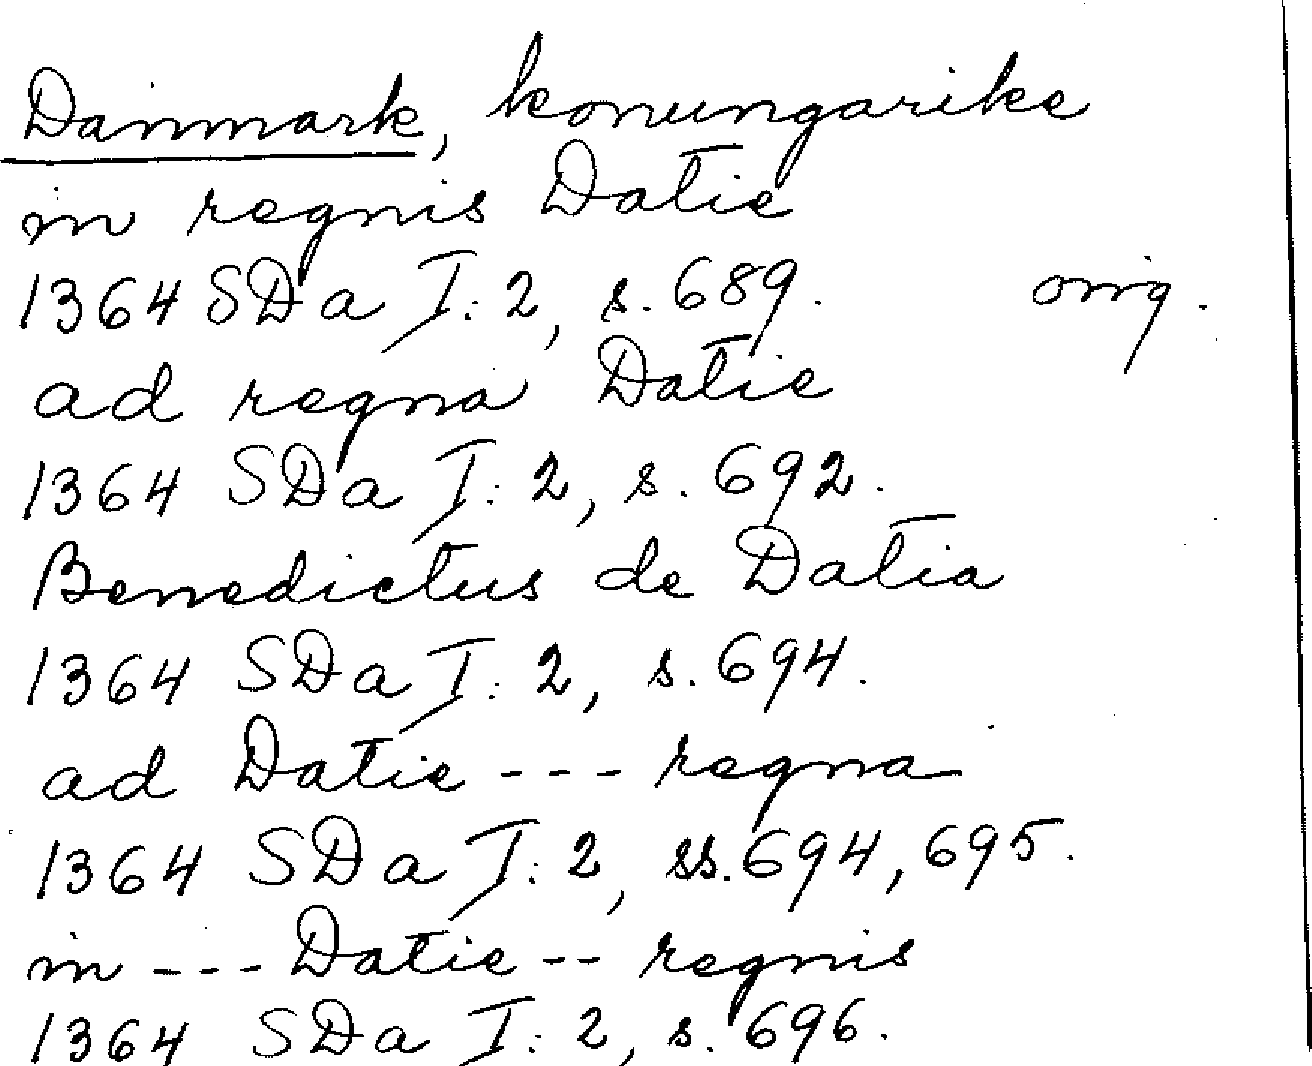 Danmark, konungarike
in regnis Datie
1364 SDa I:2, s.689. orig.
ad regna Datie
1364 SDa I:2, s.692.
Benedictus de Datia
1364 SDa I:2, s.694.
ad Datie --- regna
1364 SDa I:2, ss.694, 695.
in --- Datie -- regnis
1364 SDa I:2, s.696.